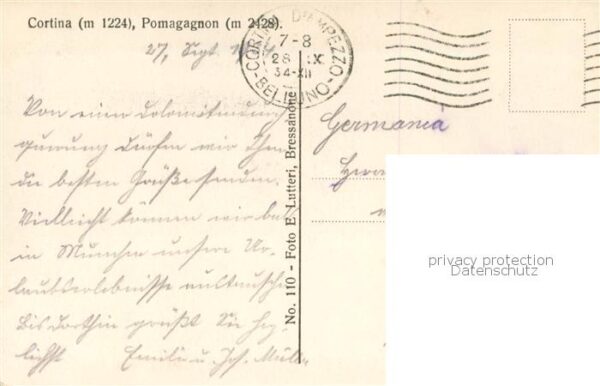 Cortina (m 1224), Pomagagnon (m 2428).
27. Sept.
CORTINA D'AMPEZZO
7-8
28 IX
34-XII
-BELLUNO-
Von einer Dolomitendurch
querung dürfen wir Ihnen
die besten Grüße senden.
Vielleicht können wir bald
in München unsere Ur-
laubserlebnisse austauschen.
Bis dorthin grüßt Sie herz-
lichst Emilie u. Joh. Müller
No. 110 - Foto E. Lutteri, Bressanone
Germania
privacy protection
Datenschutz